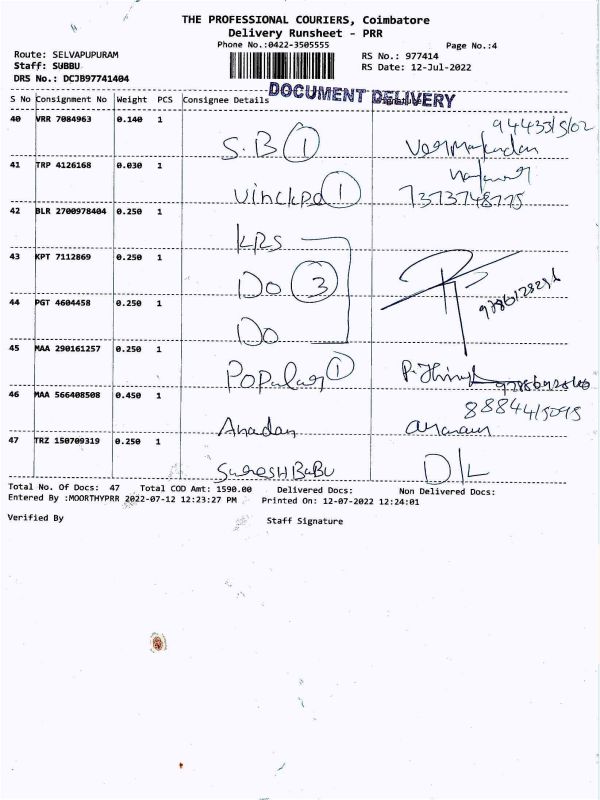 THE PROFESSIONAL COURIERS, Coimbatore
Delivery Runsheet - PRR
Phone No.:0422-3505555
Page No.:4
Route: SELVAPUPURAM
Staff: SUBBU
DRS No.: DCJB97741404
RS No.: 977414
RS Date: 12-Jul-2022
DOCUMENT DELIVERY
S No Consignment No Weight PCS Consignee Details
40 VRR 7084963 0.140 1 S.B 1
41 TRP 4126168 0.030 1 1
7373748775
42 BLR 2700978404 0.250 1 KRS
43 KPT 7112869 0.250 1 Do 3
44 PGT 4604458 0.250 1 Do
45 MAA 290161257 0.250 1 Popular 1
46 MAA 566408508 0.450 1 Anadan
47 TRZ 150709319 0.250 1 Suresh Babu D/L
Total No. Of Docs: 47 Total COD Amt: 1590.00 Delivered Docs: Non Delivered Docs:
Entered By :MOORTHYPRR 2022-07-12 12:23:27 PM Printed On: 12-07-2022 12:24:01
Verified By
Staff Signature